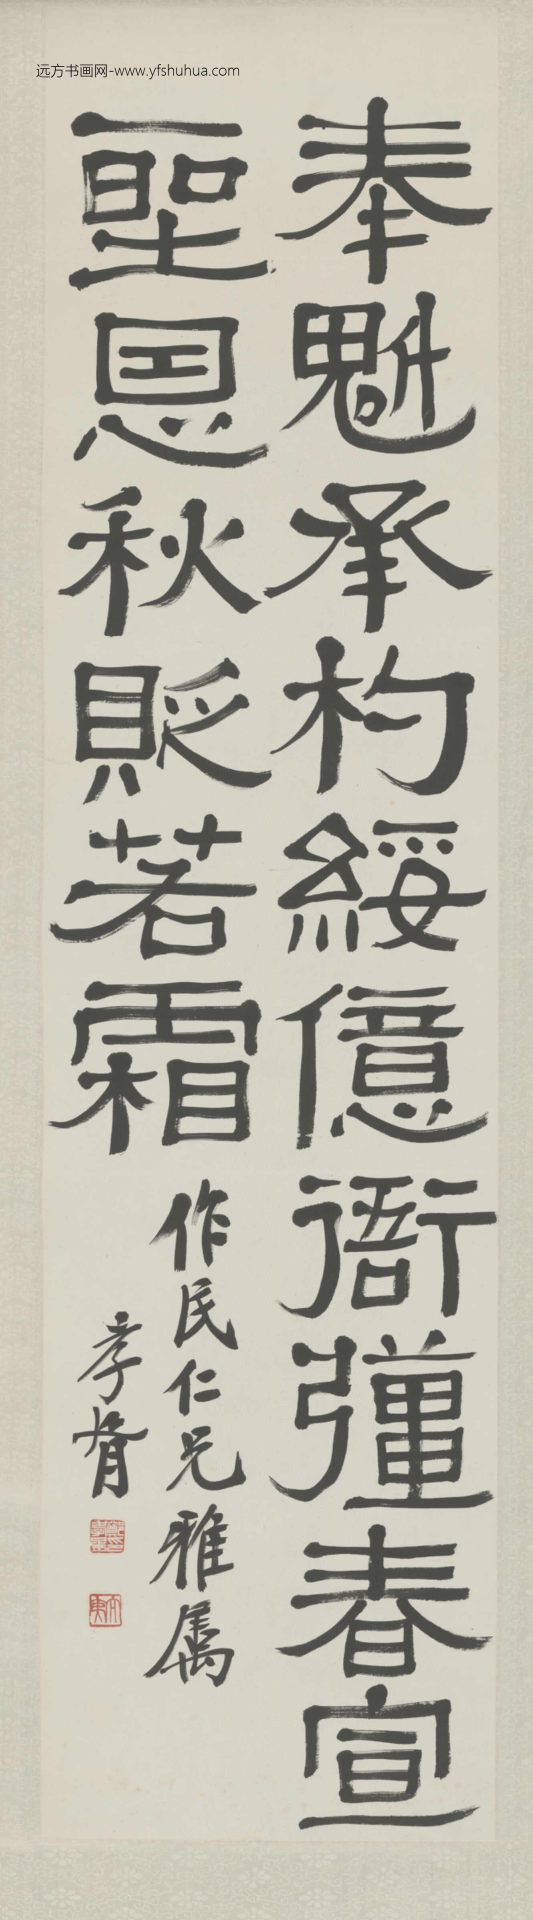 远方书画网-www.yfshuhua.com
奉魁承杓綏億衙彊春宣
聖恩秋貶若霜
作民仁兄雅属
孝胥